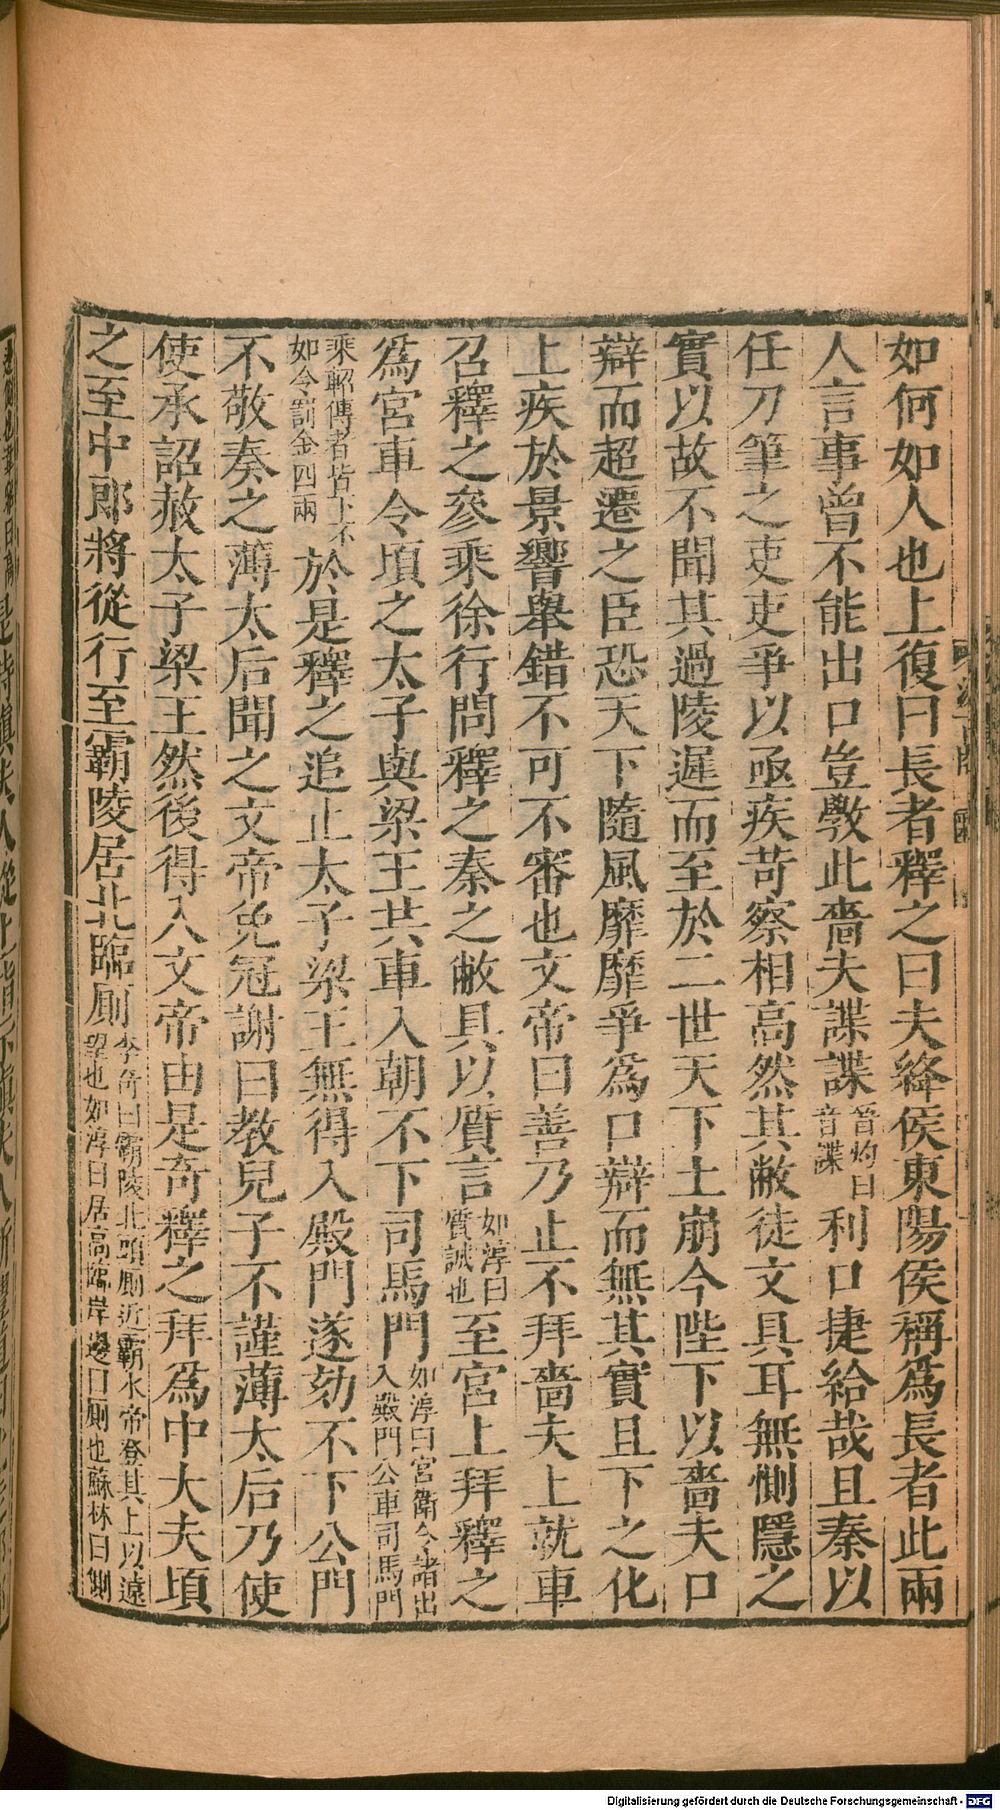 如何如人也上復曰長者釋之曰夫絳侯東陽侯稱爲長者此兩
人言事曾不能出口豈斆此嗇夫諜諜晉灼曰音諜利口捷給哉且秦以
任刀筆之吏吏爭以亟疾苛察相高然其敝徒文具耳無惻隱之
實以故不聞其過陵遲而至於二世天下土崩今陛下以嗇夫口
辯而超遷之臣恐天下隨風靡靡爭爲口辯而無其實且下之化
上疾於景響舉錯不可不審也文帝曰善乃止不拜嗇夫上就車
召釋之參乘徐行問釋之秦之敝具以質言如淳曰質誠也至宮上拜釋之
爲宮車令頃之太子與梁王共車入朝不下司馬門如淳曰宮衞令諸出入殿門公車司馬門
乘軺傳者皆下不如令罰金四兩於是釋之追止太子梁王無得入殿門遂劾不下公門
不敬奏之薄太后聞之文帝免冠謝曰教兒子不謹薄太后乃使
使承詔赦太子梁王然後得入文帝由是奇釋之拜爲中大夫頃
之至中郎將從行至霸陵居北臨厠李奇曰霸陵北頭厠近霸水帝登其上以遠望也如淳曰居高臨岸邊曰厠也蘇林曰厠
Digitalisierung gefördert durch die Deutsche Forschungsgemeinschaft - DFG